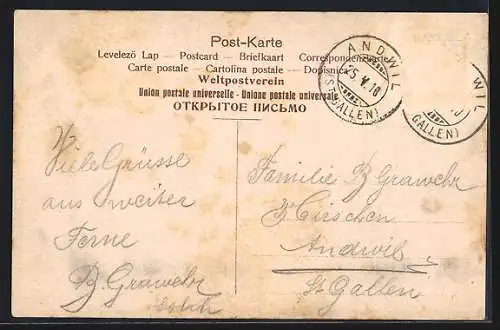 Post-Karte
Levelező Lap — Postcard — Briefkaart — Correspondenzkarte
Carte postale — Cartolina postale — Dopisnica
Weltpostverein
Union postale universelle - Unione postale universale
ОТКРЫТОЕ ПИСЬМО
ANDWIL
25.V.10
(ST. GALLEN)
WIL
GALLEN)
Viele Grüsse
aus weiter
Ferne
B. Grawehr
Familie B Grawehr
z. Hirschen
Andwil
St. Gallen